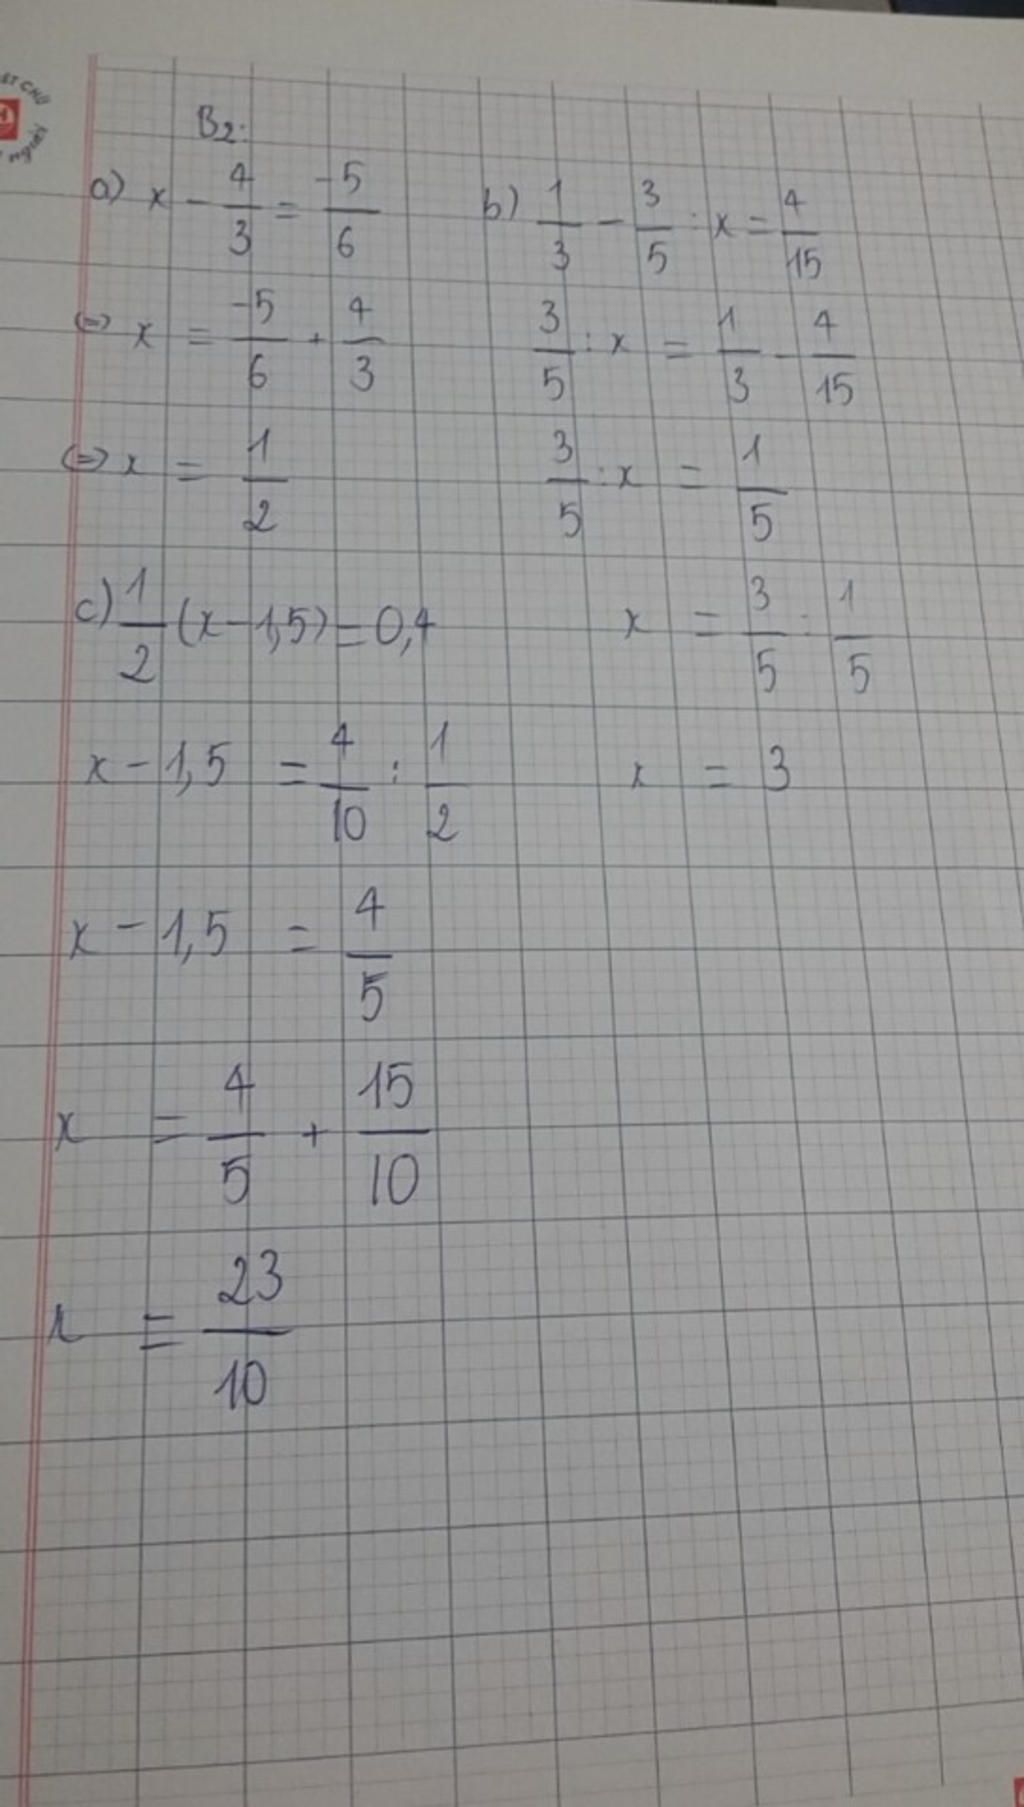 B2:
a) x - 4/3 = -5/6
⇔ x = -5/6 + 4/3
⇔ x = 1/2
b) 1/3 - 3/5 : x = 4/15
3/5 : x = 1/3 - 4/15
3/5 : x = 1/5
x = 3/5 : 1/5
x = 3
c) 1/2 (x - 1,5) = 0,4
x - 1,5 = 4/10 : 1/2
x - 1,5 = 4/5
x = 4/5 + 15/10
x = 23/10